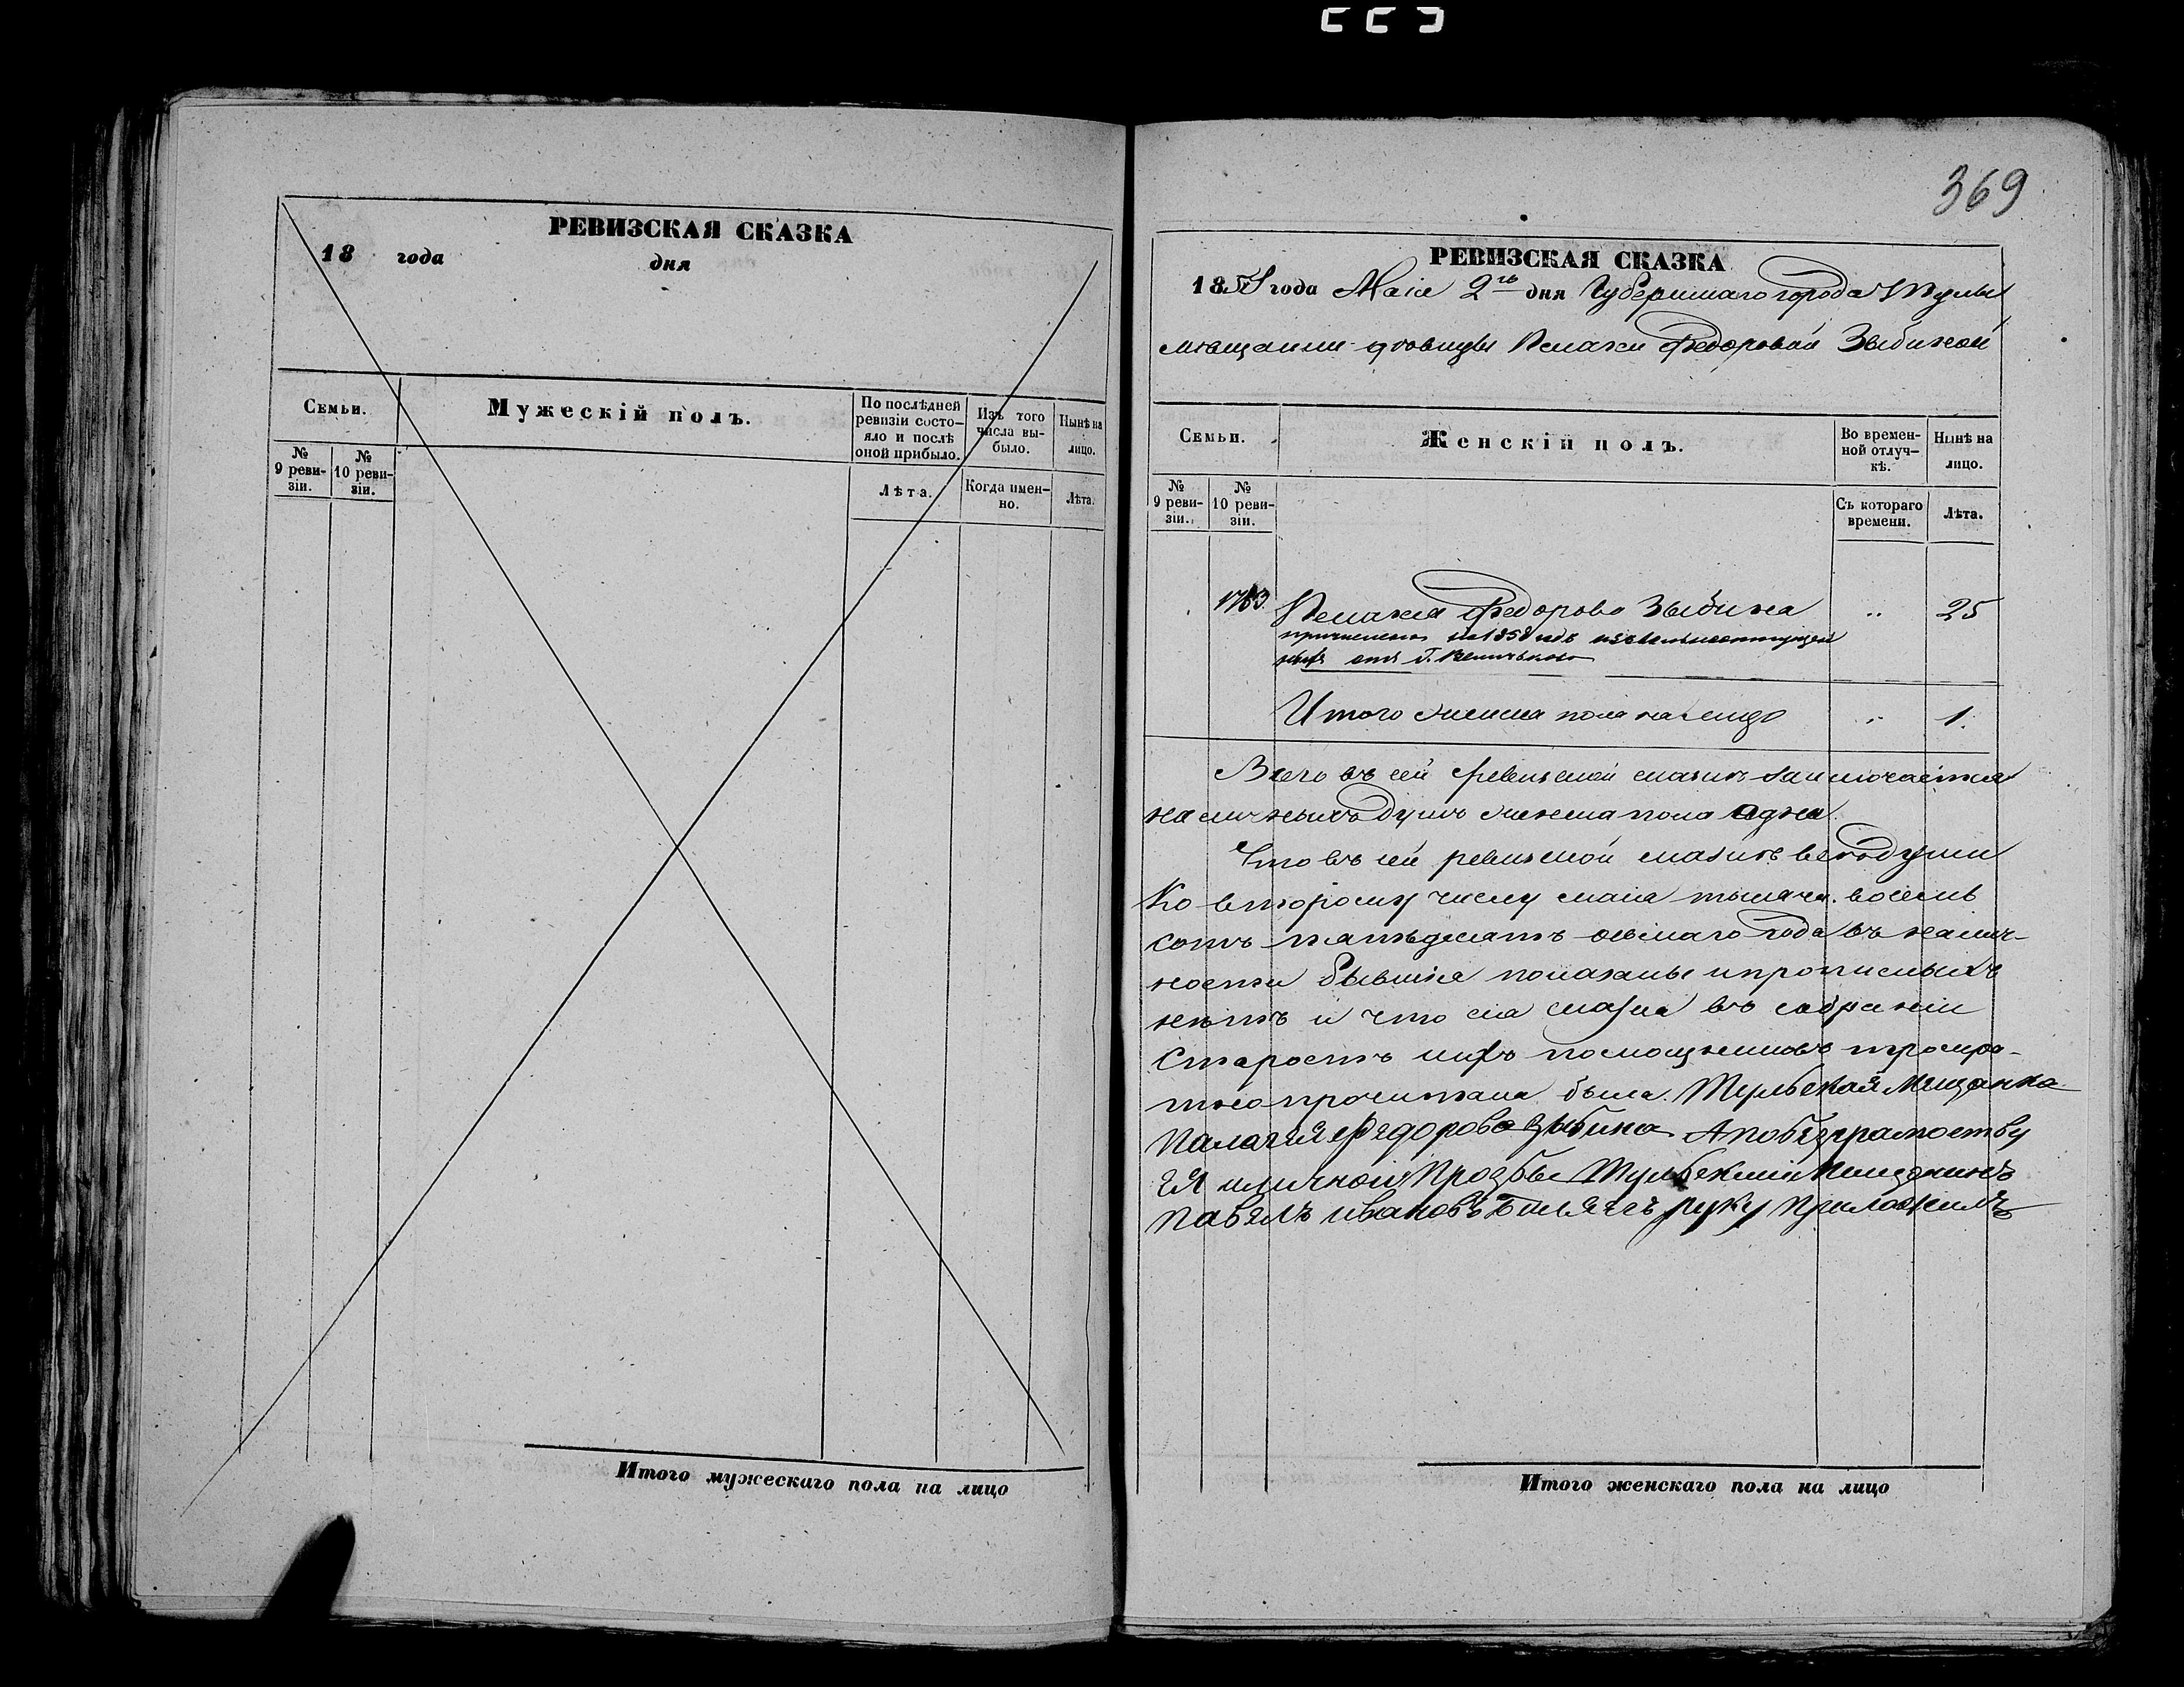 369
РЕВИЗСКАЯ СКАЗКА
18 года дня
Семьи.
Мужескій полъ.
По послѣдней ревизіи состо-
яло и послѣ оной прибыло.
Изъ того числа вы-
было.
Нынѣ на лицо.
№ 9 реви-
зіи.
№ 10 реви-
зіи.
Лѣта.
Когда имен-
но.
Лѣта.
Итого мужескаго пола на лицо
РЕВИЗСКАЯ СКАЗКА
1858 года Маія 2го дня Губернскаго города Тулы
мѣщанки вдовицы Пелагеи Федоровой Зыбиной
Семьи.
Женскій полъ.
Во времен-
ной отлуч-
кѣ.
Нынѣ на
лицо.
№ 9 реви-
зіи.
№ 10 реви-
зіи.
Съ котораго
времени.
Лѣта.
1783 Пелагея Федорова Зыбина " 25
причислена на 1858 годъ изъ вольноотпущен
ныхъ отъ Г.
Итого женска пола на лицо " 1.
Всего въ сей ревизской сказкѣ заключается
наличныхъ душъ женска пола одна.
Что въ сей ревизской сказкѣ все души
Ко второму числу маія тысяча восемь
сотъ пятьдесятъ осьмаго года въ налич-
ности бывшіе показаны и прописныхъ
нѣтъ и что сія сказка въ собраніи
Старостъ ихъ помощниковъ троекра-
тно прочитана была. Тульская Мещанка
Палагея Федорова Зыбина А побезграмоству
Ея иличной Прозбы Тульскій Мещанинъ
Павелъ Ивановъ руку Приложилъ
Итого женскаго пола на лицо